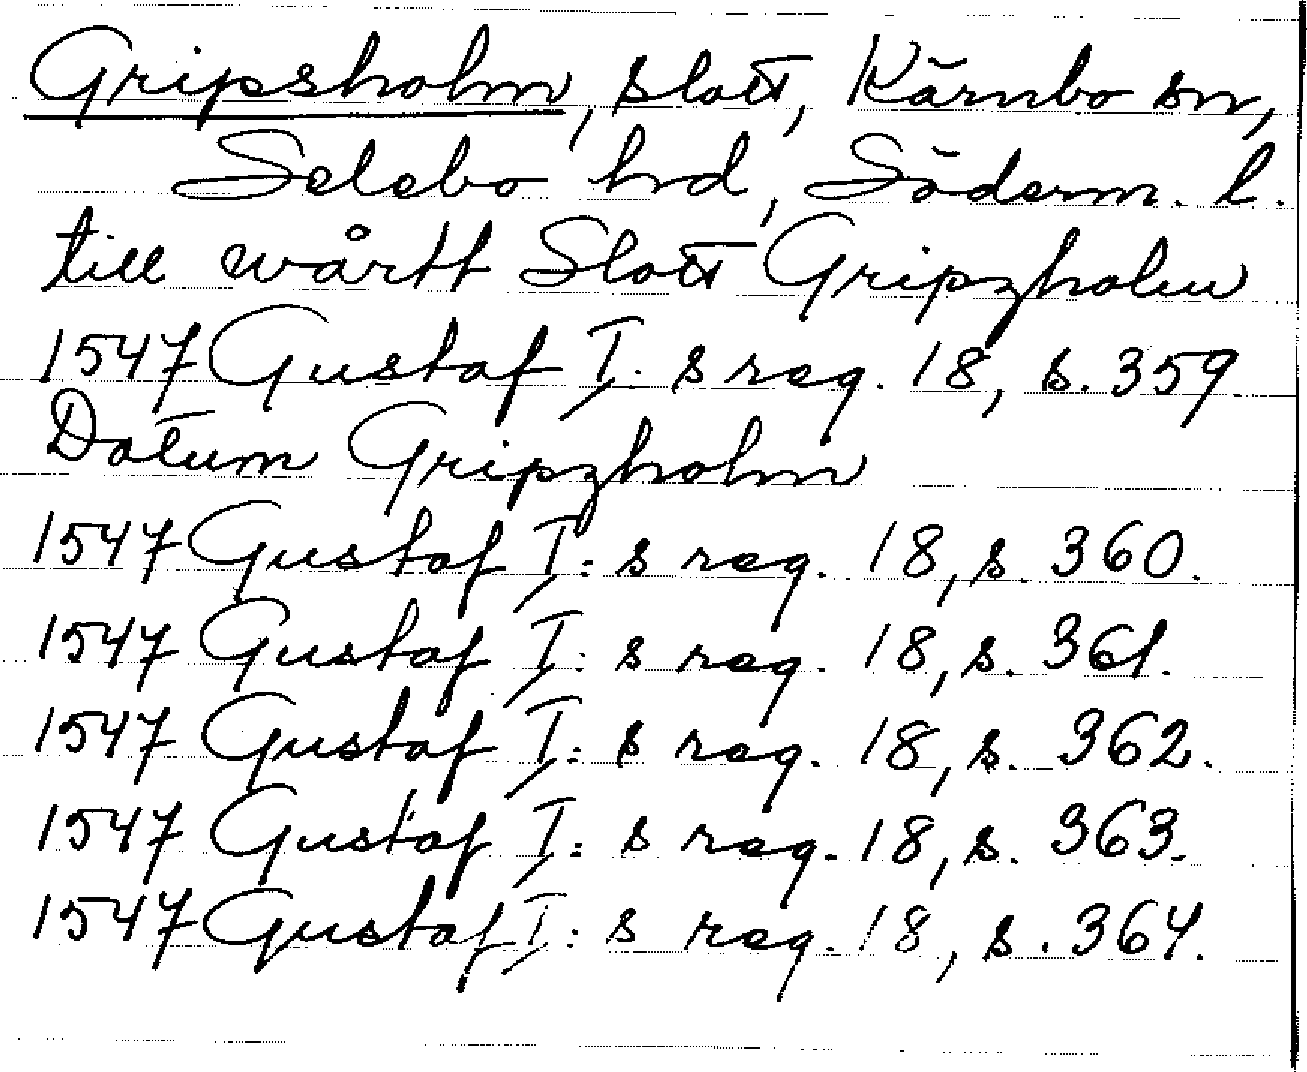 Gripsholm, slott, Kärnbo sn,
Selebo hd, Söderm. l.
till wårtt Slott Gripzholm
1547 Gustaf I: s reg. 18, s. 359
Datum Gripzholm
1547 Gustaf I: s reg. 18, s. 360.
1547 Gustaf I: s reg. 18, s. 361.
1547 Gustaf I: s reg. 18, s. 362.
1547 Gustaf I: s reg. 18, s. 363.
1547 Gustaf I: s reg. 18, s. 364.